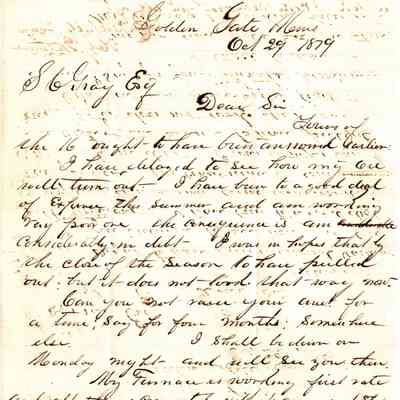 Golden Gate Mine
Oct 29th 1879
S C Gray Esq
Dear Sir
Yours of
the 16 ought to have been answered Earlier
I have delayed to see how my Ore
will turn out - I have been to a good deal
of Expense the summer and am working
very poor ore the consequence is am
considerably in debt - I was in hopes that by
the close of the season to have pulled
out, but it does not look that way now -
Can you not raise your amt for
a time, Say for four months, Somewhere
else. I shall be down on
Monday night and will see you then
My Furnace is working first rate